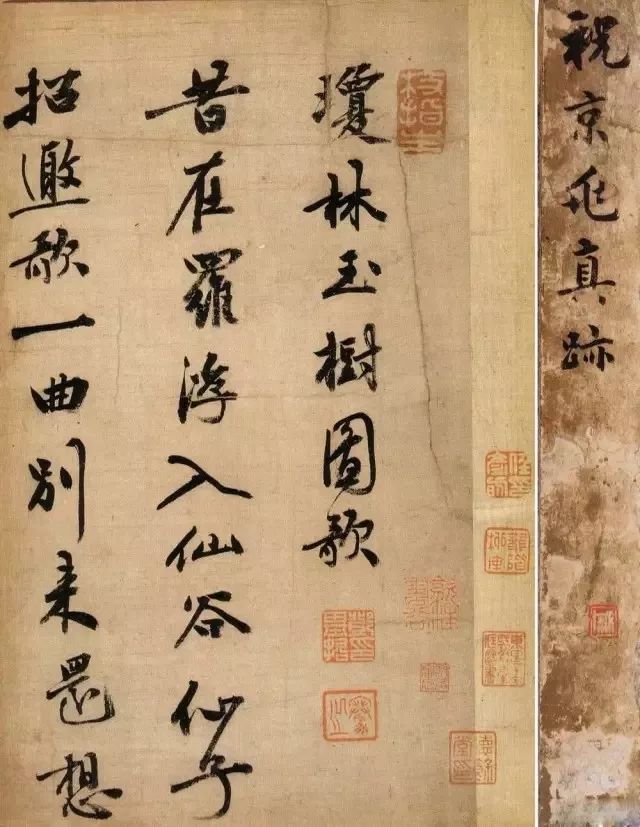 祝京兆真跡
瓊林玉樹圖歌
昔在羅浮入仙谷仙子
招邀歌一曲別來還想